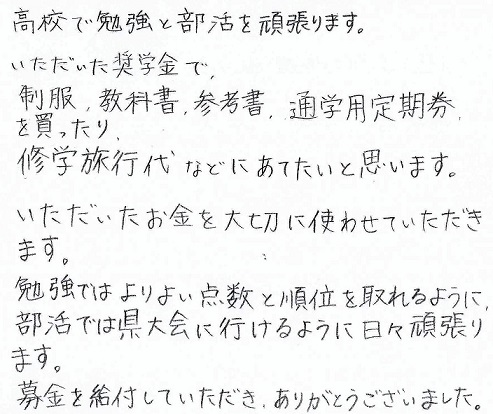 高校で勉強と部活を頑張ります。
いただいた奨学金で、
制服、教科書、参考書、通学用定期券
を買ったり、
修学旅行代などにあてたいと思います。
いただいたお金を大切に使わせていただき
ます。
勉強ではよりよい点数と順位を取れるように、
部活では県大会に行けるように日々頑張り
ます。
募金を給付していただき、ありがとうございました。